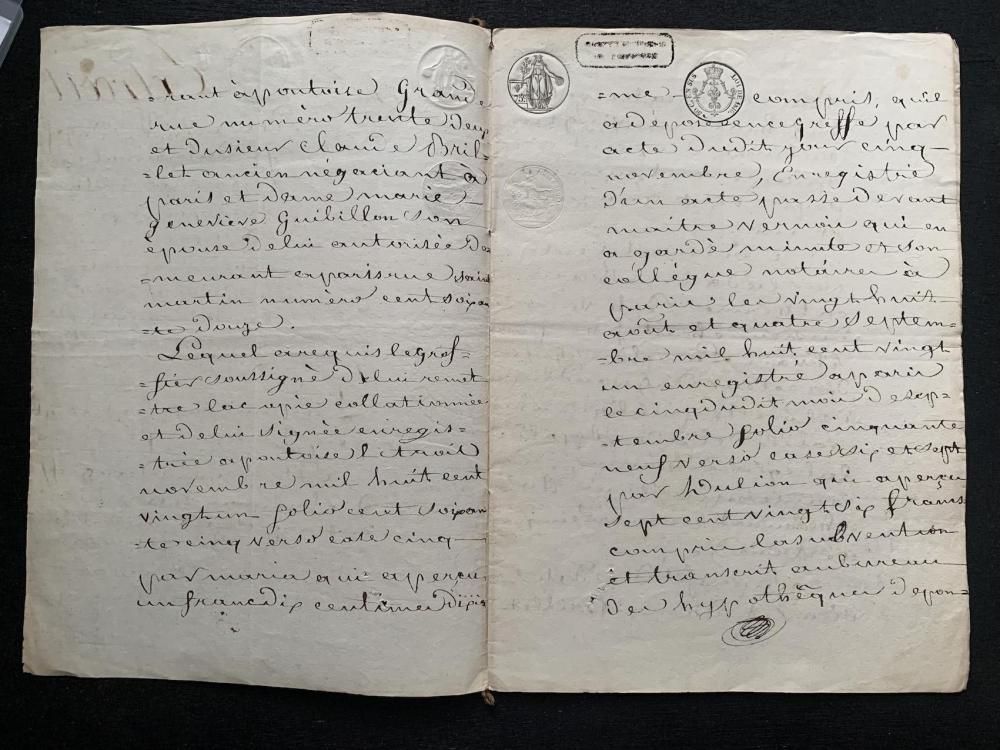 =rant à pontoise Grande
rue numéro trente deux
et du sieur Claude Bril=
=let ancien négociant à
paris et dame marie
geneviève Guibillon son
épouse de lui autorisée de
=meurant a paris rue saint
martin numéro cent soixan
=te douze.
Lequel a requis le gref=
=fier soussigné de lui remet
=tre la copie collationnée
et de lui signée enregis=
=trée a pontoise le trois
novembre mil huit cent
vingt un folio cent soixan
=te cinq verso case cinq
par maria qui a perçu
un franc dix centimes dixiè
=me compris, qu'il
a déposé en ce greffe par
acte dudit jour cinq
novembre, Enregistré
d'un acte passé devant
maitre vernois qui en
a gardé minute et son
collégue notaires à
paris les vingt huit
août et quatre Septem=
=bre mil huit cent vingt
un enregistré a paris
le cinq dudit mois de sep=
=tembre folio cinquante
neuf verso case six et sept
par qui a perçu
sept cent vingt six francs
compris la subvention
et transcrit au bureau
des hypothèques de pon=